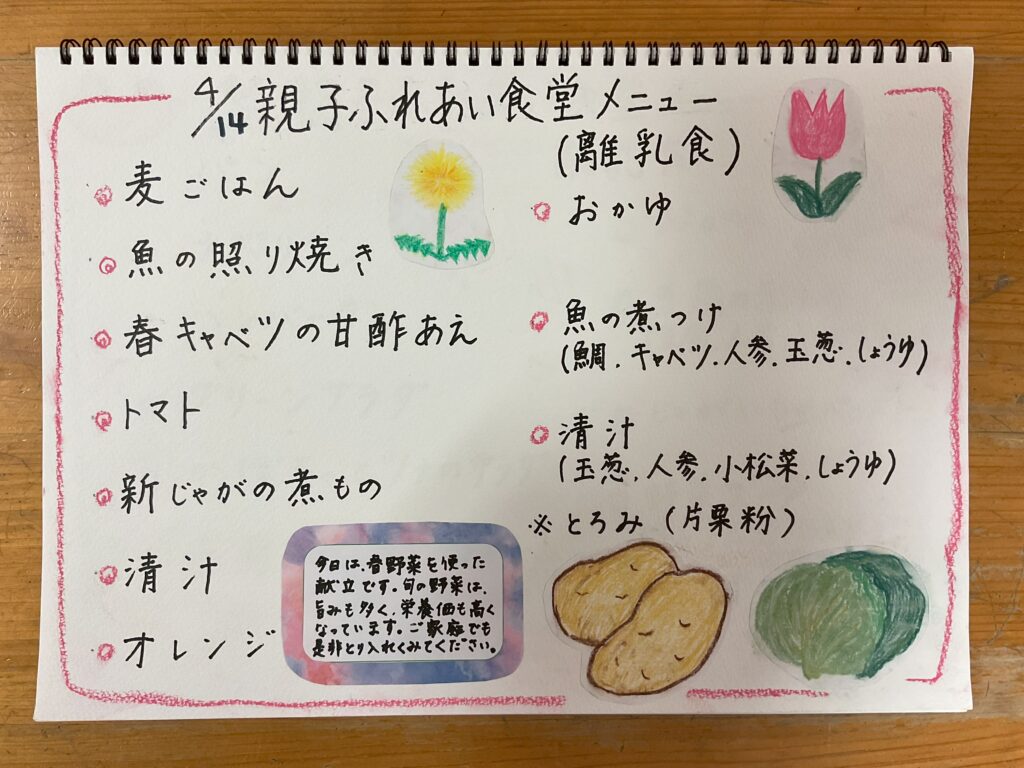 4/14 親子ふれあい食堂メニュー
麦ごはん
魚の照り焼き
春キャベツの甘酢あえ
トマト
新じゃがの煮もの
清汁
オレンジ
(離乳食)
おかゆ
魚の煮つけ
(鯛.キャベツ.人参.玉葱.しょうゆ)
清汁
(玉葱.人参.小松菜.しょうゆ)
※とろみ(片栗粉)
今日は、春野菜を使った
献立です。旬の野菜は、
旨みも多く、栄養価も高く
なっています。ご家庭でも
是非とり入れてみてください。